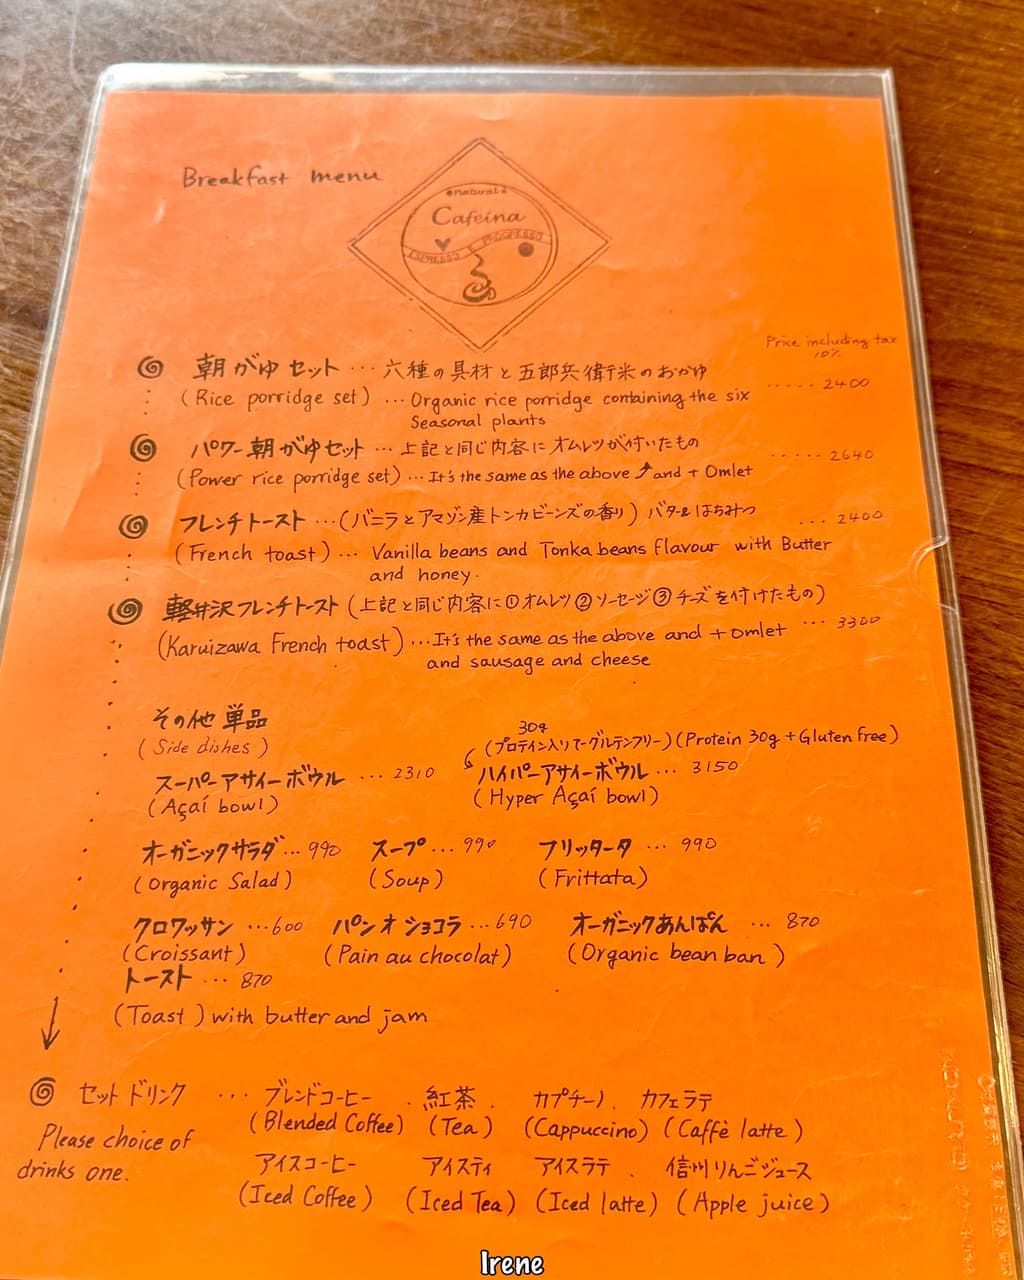 Breakfast menu
natural
Cafeína
ESPRESSO E PROGRESSO
Price including tax
10%
朝がゆセット ··· 六種の具材と五郎兵衛米のおかゆ
(Rice porridge set) ··· Organic rice porridge containing the six ····· 2400
Seasonal plants
パワー朝がゆセット ··· 上記と同じ内容にオムレツが付いたもの
(Power rice porridge set) ··· It's the same as the above ⤴ and + Omlet ····· 2640
フレンチトースト ··· (バニラとアマゾン産トンカビーンズの香り) バター&はちみつ ··· 2400
(French toast) ··· Vanilla beans and Tonka beans flavour with Butter
and honey.
軽井沢フレンチトースト (上記と同じ内容に①オムレツ②ソーセージ③チーズを付けたもの)
(Karuizawa French toast) ··· It's the same as the above and + omlet ··· 3300
and sausage and cheese
その他 単品
(Side dishes)
30g
(プロテイン入りでグルテンフリー) (Protein 30g + Gluten free)
スーパーアサイーボウル ··· 2310 ハイパーアサイーボウル ··· 3150
(Açaí bowl) (Hyper Açaí bowl)
オーガニックサラダ ··· 990 スープ ··· 990 フリッタータ ··· 990
(Organic Salad) (Soup) (Frittata)
クロワッサン ··· 600 パンオショコラ ··· 690 オーガニックあんぱん ··· 870
(Croissant) (Pain au chocolat) (Organic bean ban)
トースト ··· 870
(Toast) with butter and jam
セットドリンク ··· ブレンドコーヒー . 紅茶 . カプチーノ . カフェラテ
Please choice of (Blended Coffee) (Tea) (Cappuccino) (Caffè latte)
drinks one. アイスコーヒー アイスティ アイスラテ . 信州りんごジュース
(Iced Coffee) (Iced Tea) (Iced latte) (Apple juice)
Irene